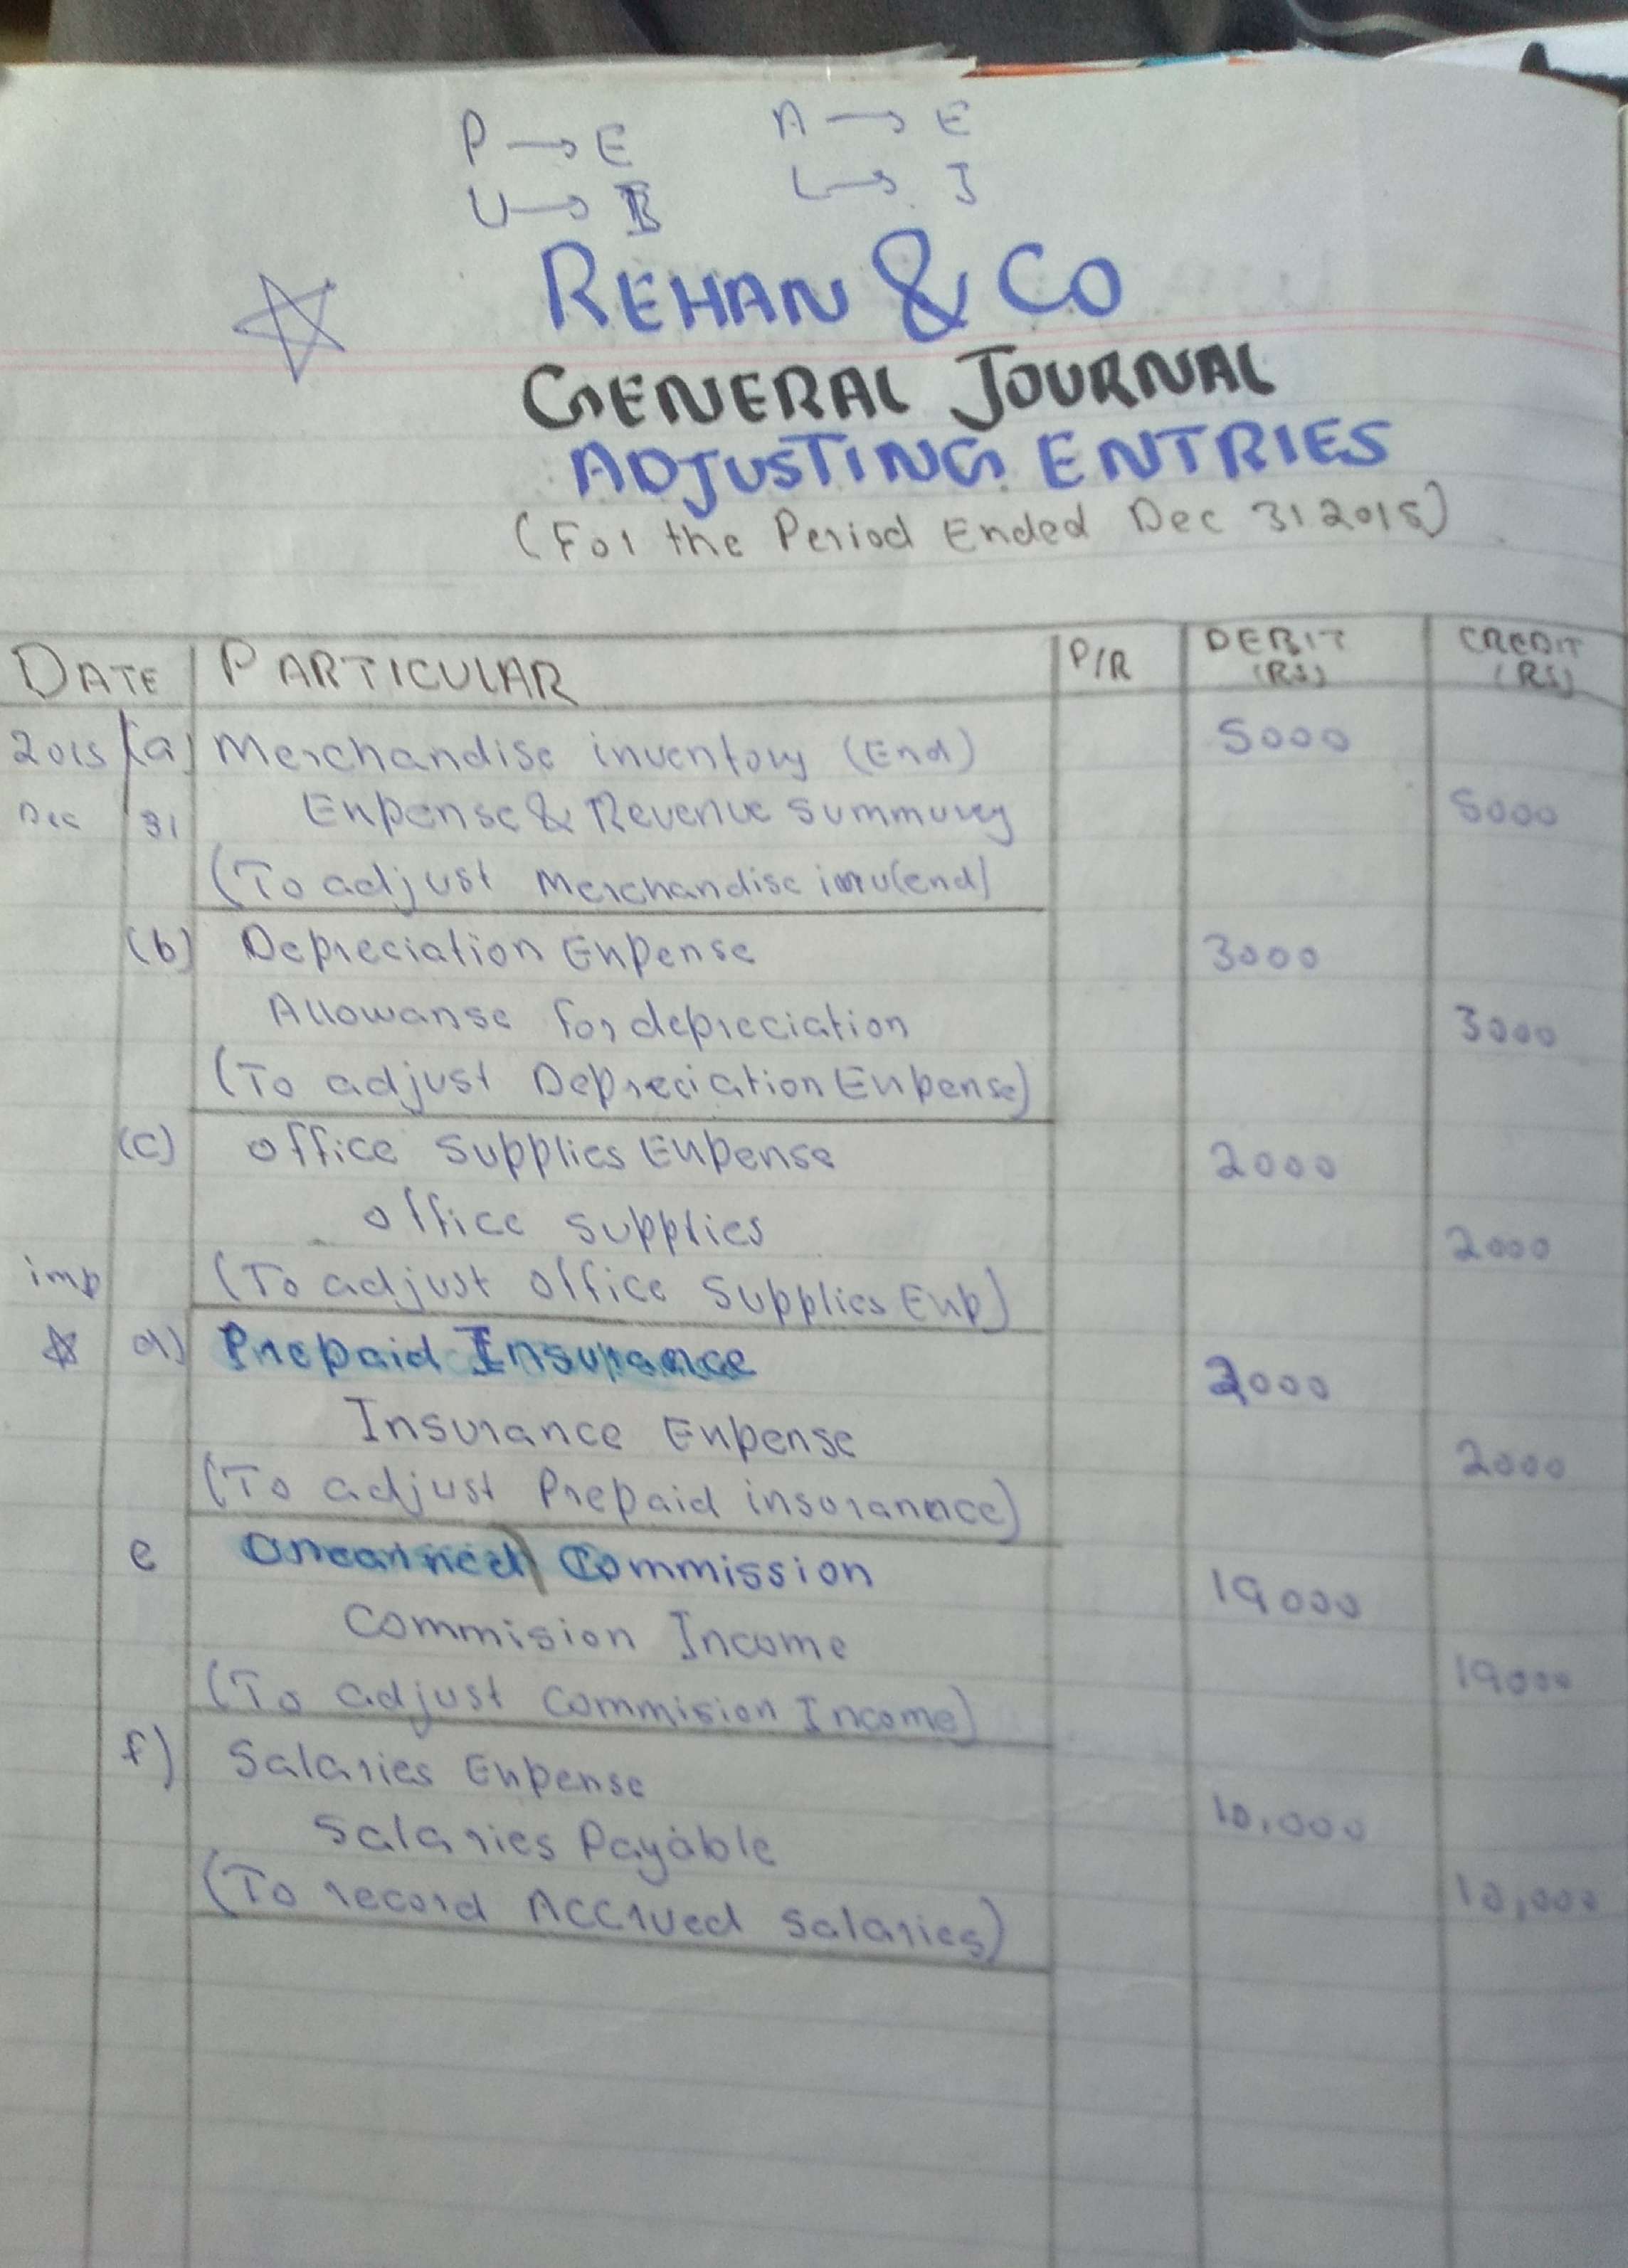 P → E A → E
U → R L → I
REHAN & CO
GENERAL JOURNAL
ADJUSTING ENTRIES
(For the Period Ended Dec 31 2015)
DATE PARTICULAR P/R DEBIT (RS) CREDIT (RS)
2015 (a) Merchandise inventory (End) 5000
Dec 31 Expense & Revenue Summury 5000
(To adjust Merchandise (end)
(b) Depreciation Expense 3000
Allowanse for depreciation 3000
(To adjust Depreciation Expense)
(c) office Supplies Expense 2000
office supplies 2000
imp (To adjust office Supplies Exp)
d) Prepaid Insurance 2000
Insurance Expense 2000
(To adjust Prepaid insurannce)
e Unearned Commission 19000
Commision Income 19000
(To adjust Commision Income)
f) Salaries Expense 10,000
Salaries Payable 10,000
(To record Accrued salaries)